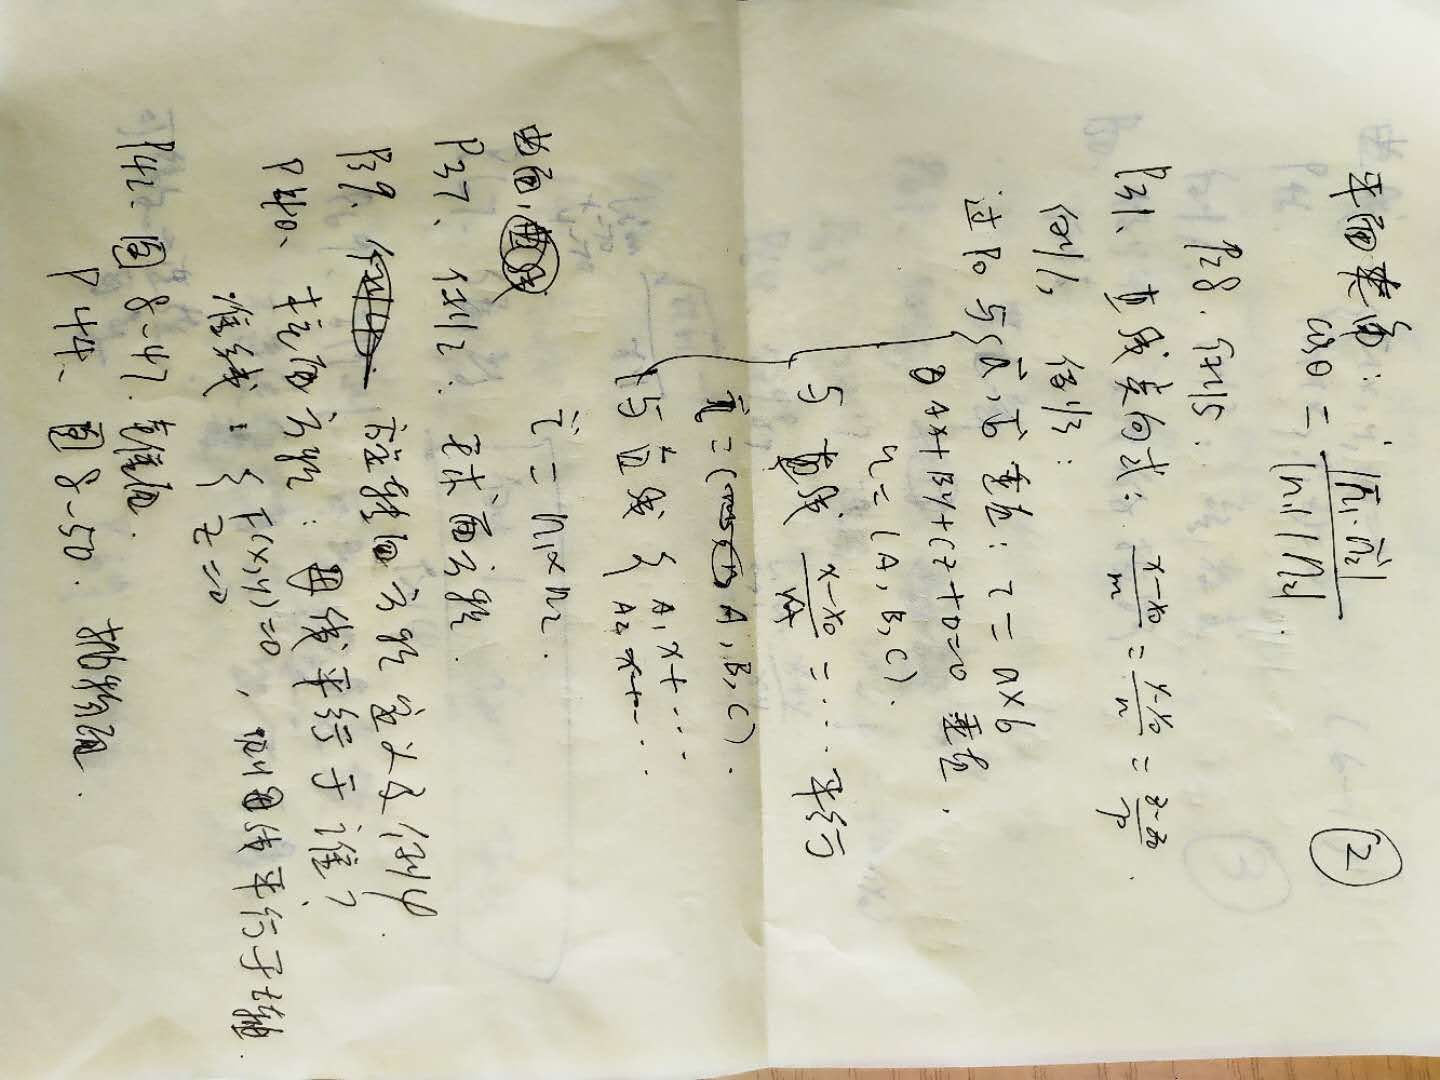 平面夹角:
②
cosθ = |n⃗₁·n⃗₂| / |n₁| |n₂| .
P28. 例5.
P31、直线点向式: (x-x₀)/m = (y-y₀)/n = (z-z₀)/p .
例1, 例3:
过P₀ 与 { a⃗, b⃗ 垂直: τ = a×b
Ax+By+Cz+D=0 垂直.
τ=(A, B, C).
与 直线 (x-x₀)/A = … 平行
τ⃗ = (A, B, C).
与直线 { A₁x+…
A₂x+…
τ⃗ = n₁×n₂.
曲面,
P37、例2. 球面方程.
P39、旋转面方程定义及例4.
P40、柱面方程: 母线平行于谁?
准线: { F(x,y)=0
z=0 , 则母线平行于z轴.
P42、图8-47. 锥面.
P44、图8-50. 抛物面.